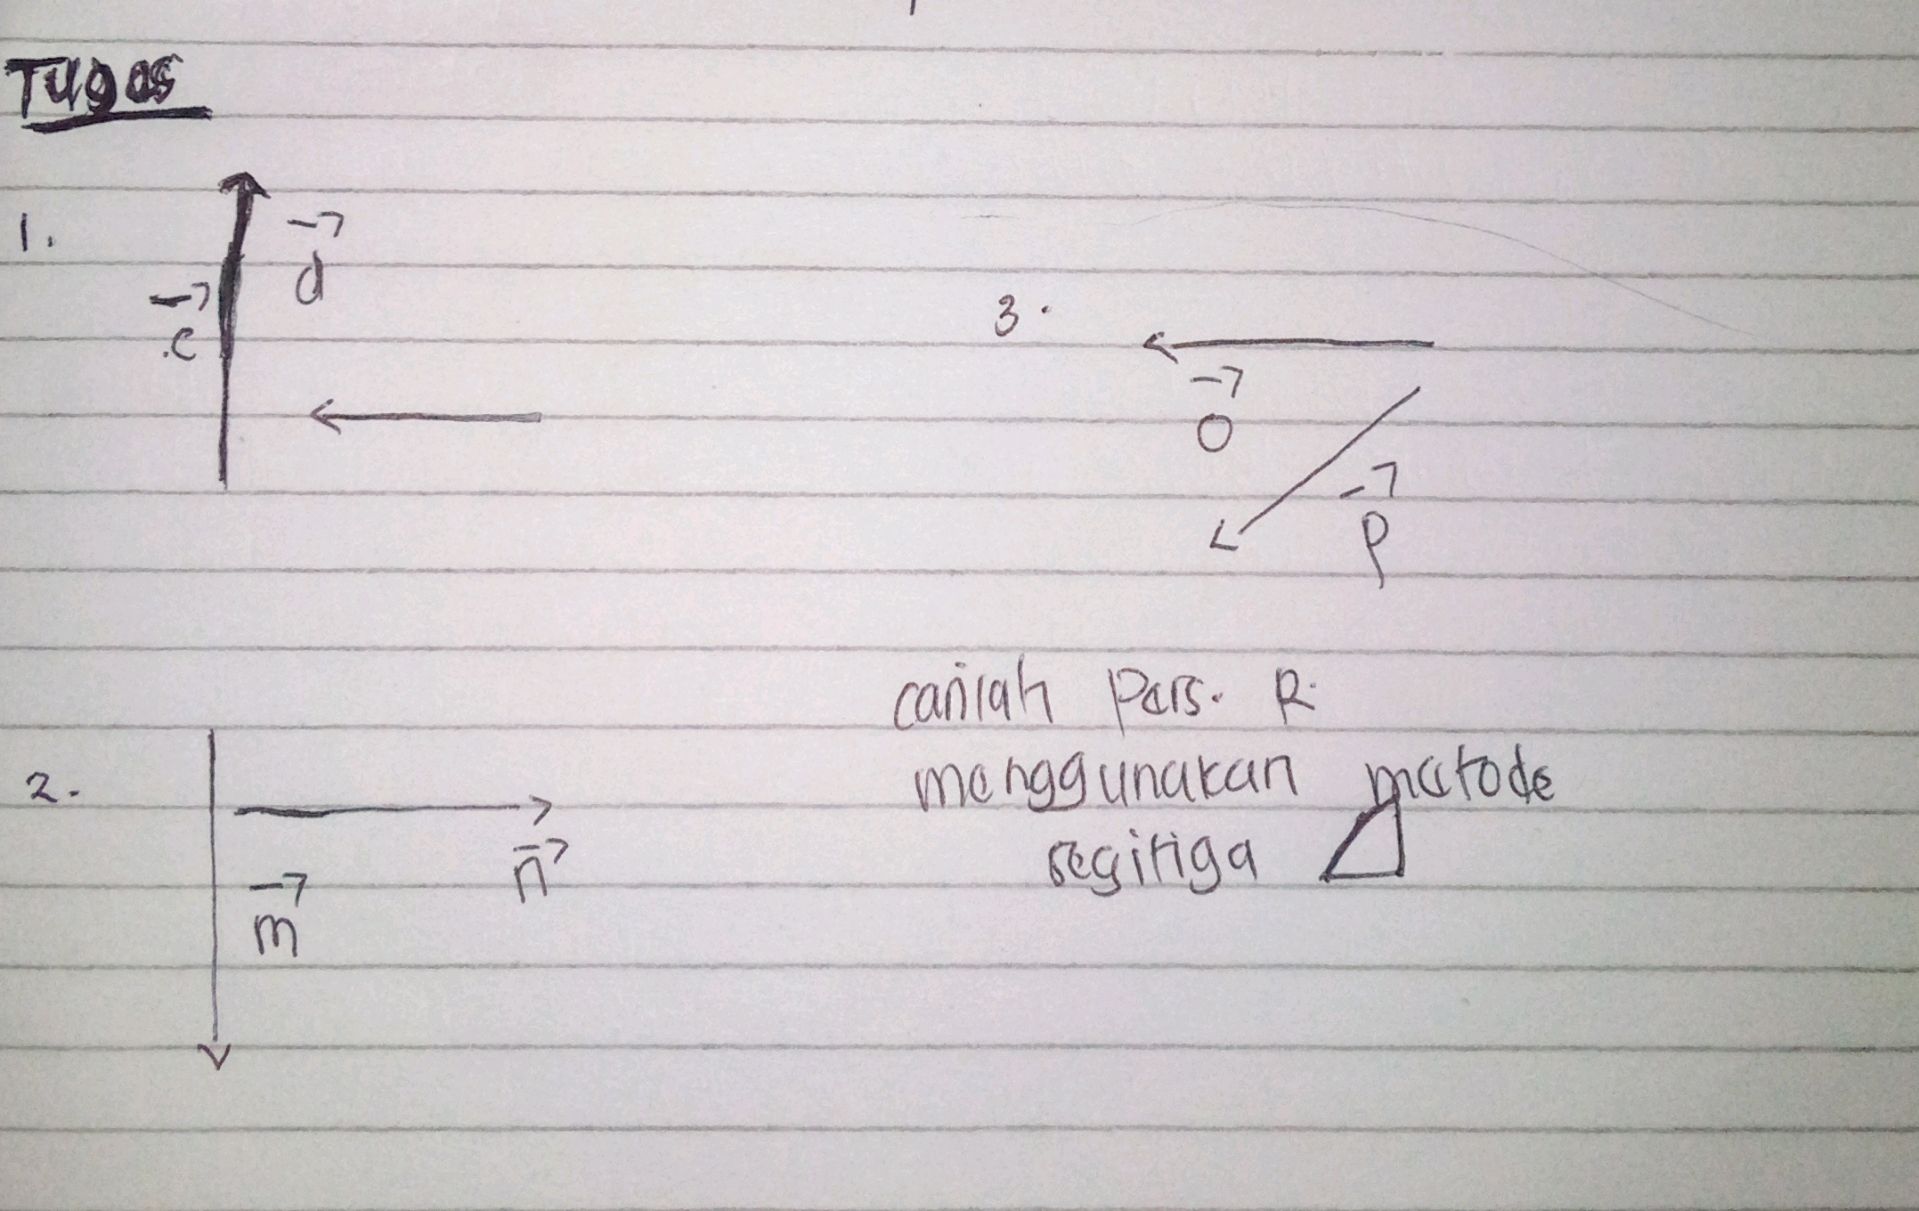 Tugas
1.
d
c
3.
o
p
carilah Pers. R.
2.
menggunakan metode
segitiga
n
m